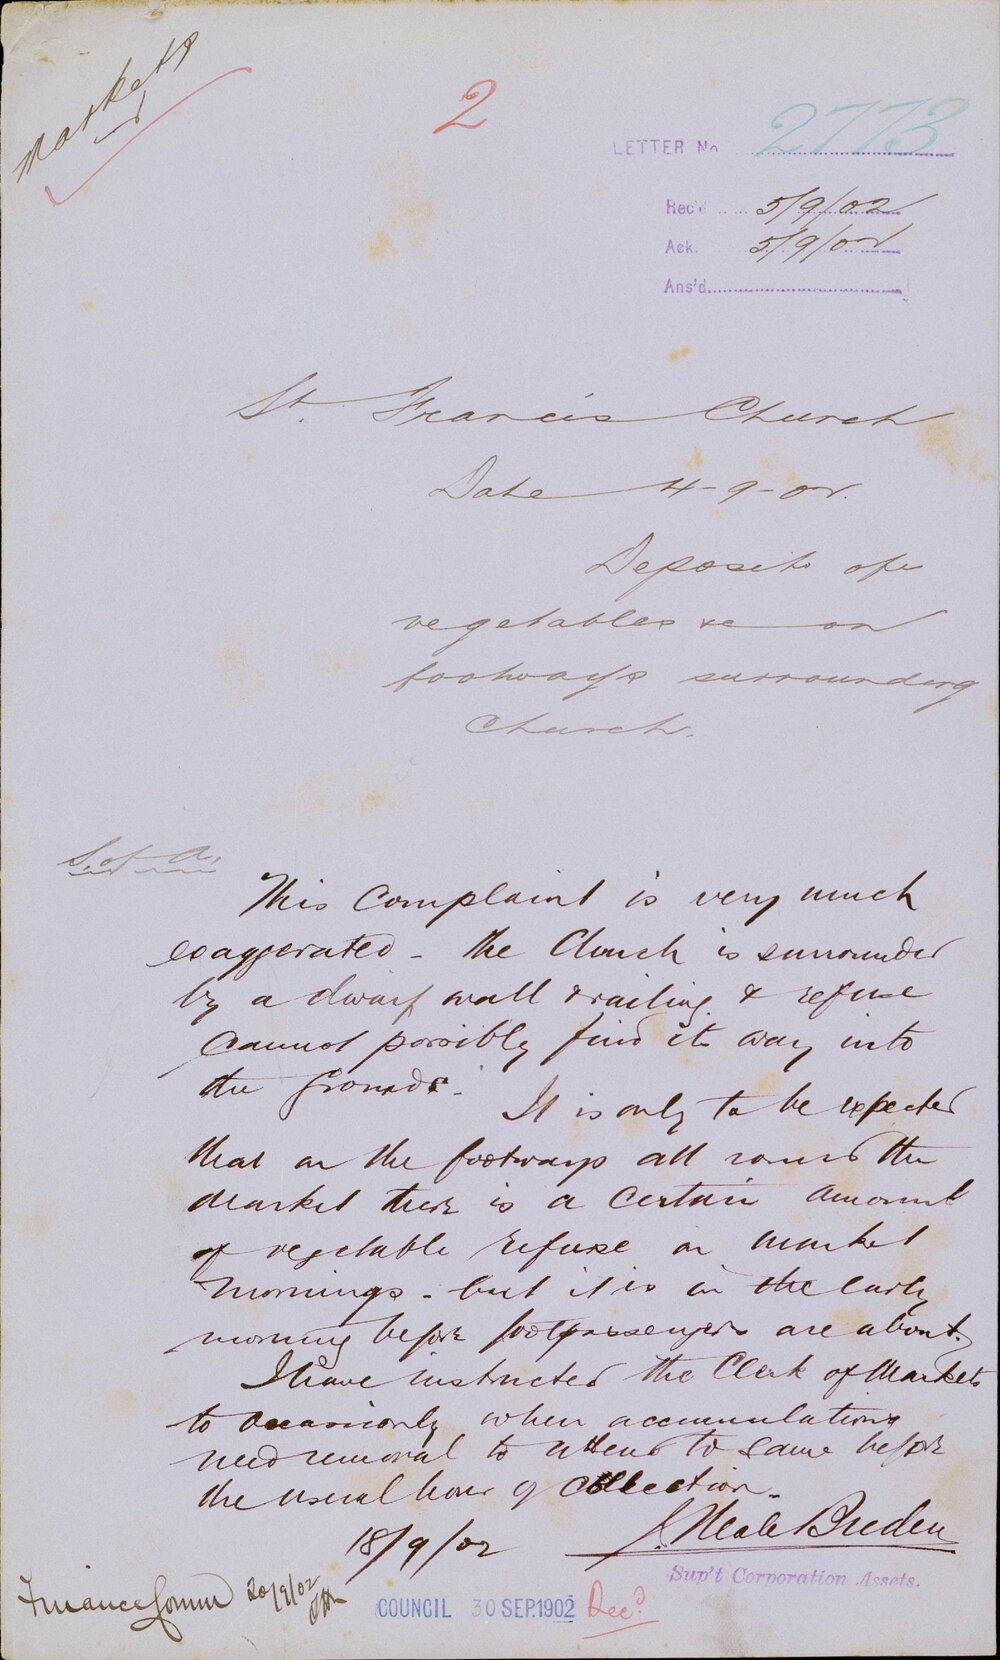 Markets
2
LETTER No 2773
Rec'd 5/9/02
Ack. 5/9/02
Ans'd
St. Francis Church
Date 4-9-02.
Deposit of
vegetables &c on
footways surrounding
Church.
S. of A.
This Complaint is very much
exaggerated - the Church is surrounded
by a dwarf wall & railing & refuse
cannot possibly find its way into
the grounds.
It is only to be expected
that on the footways all round the
Market there is a certain amount
of vegetable refuse on market
mornings - but it is in the early
morning before footpassengers are about.
I have instructed the Clerk of Markets
to occasionly when accumulations
need removal to attend to same before
the usual hour of collection.
18/9/02 J. Neale Breden
Sup't Corporation Assets.
Finance Comm 20/9/02
COUNCIL 30 SEP.1902 Rec'd